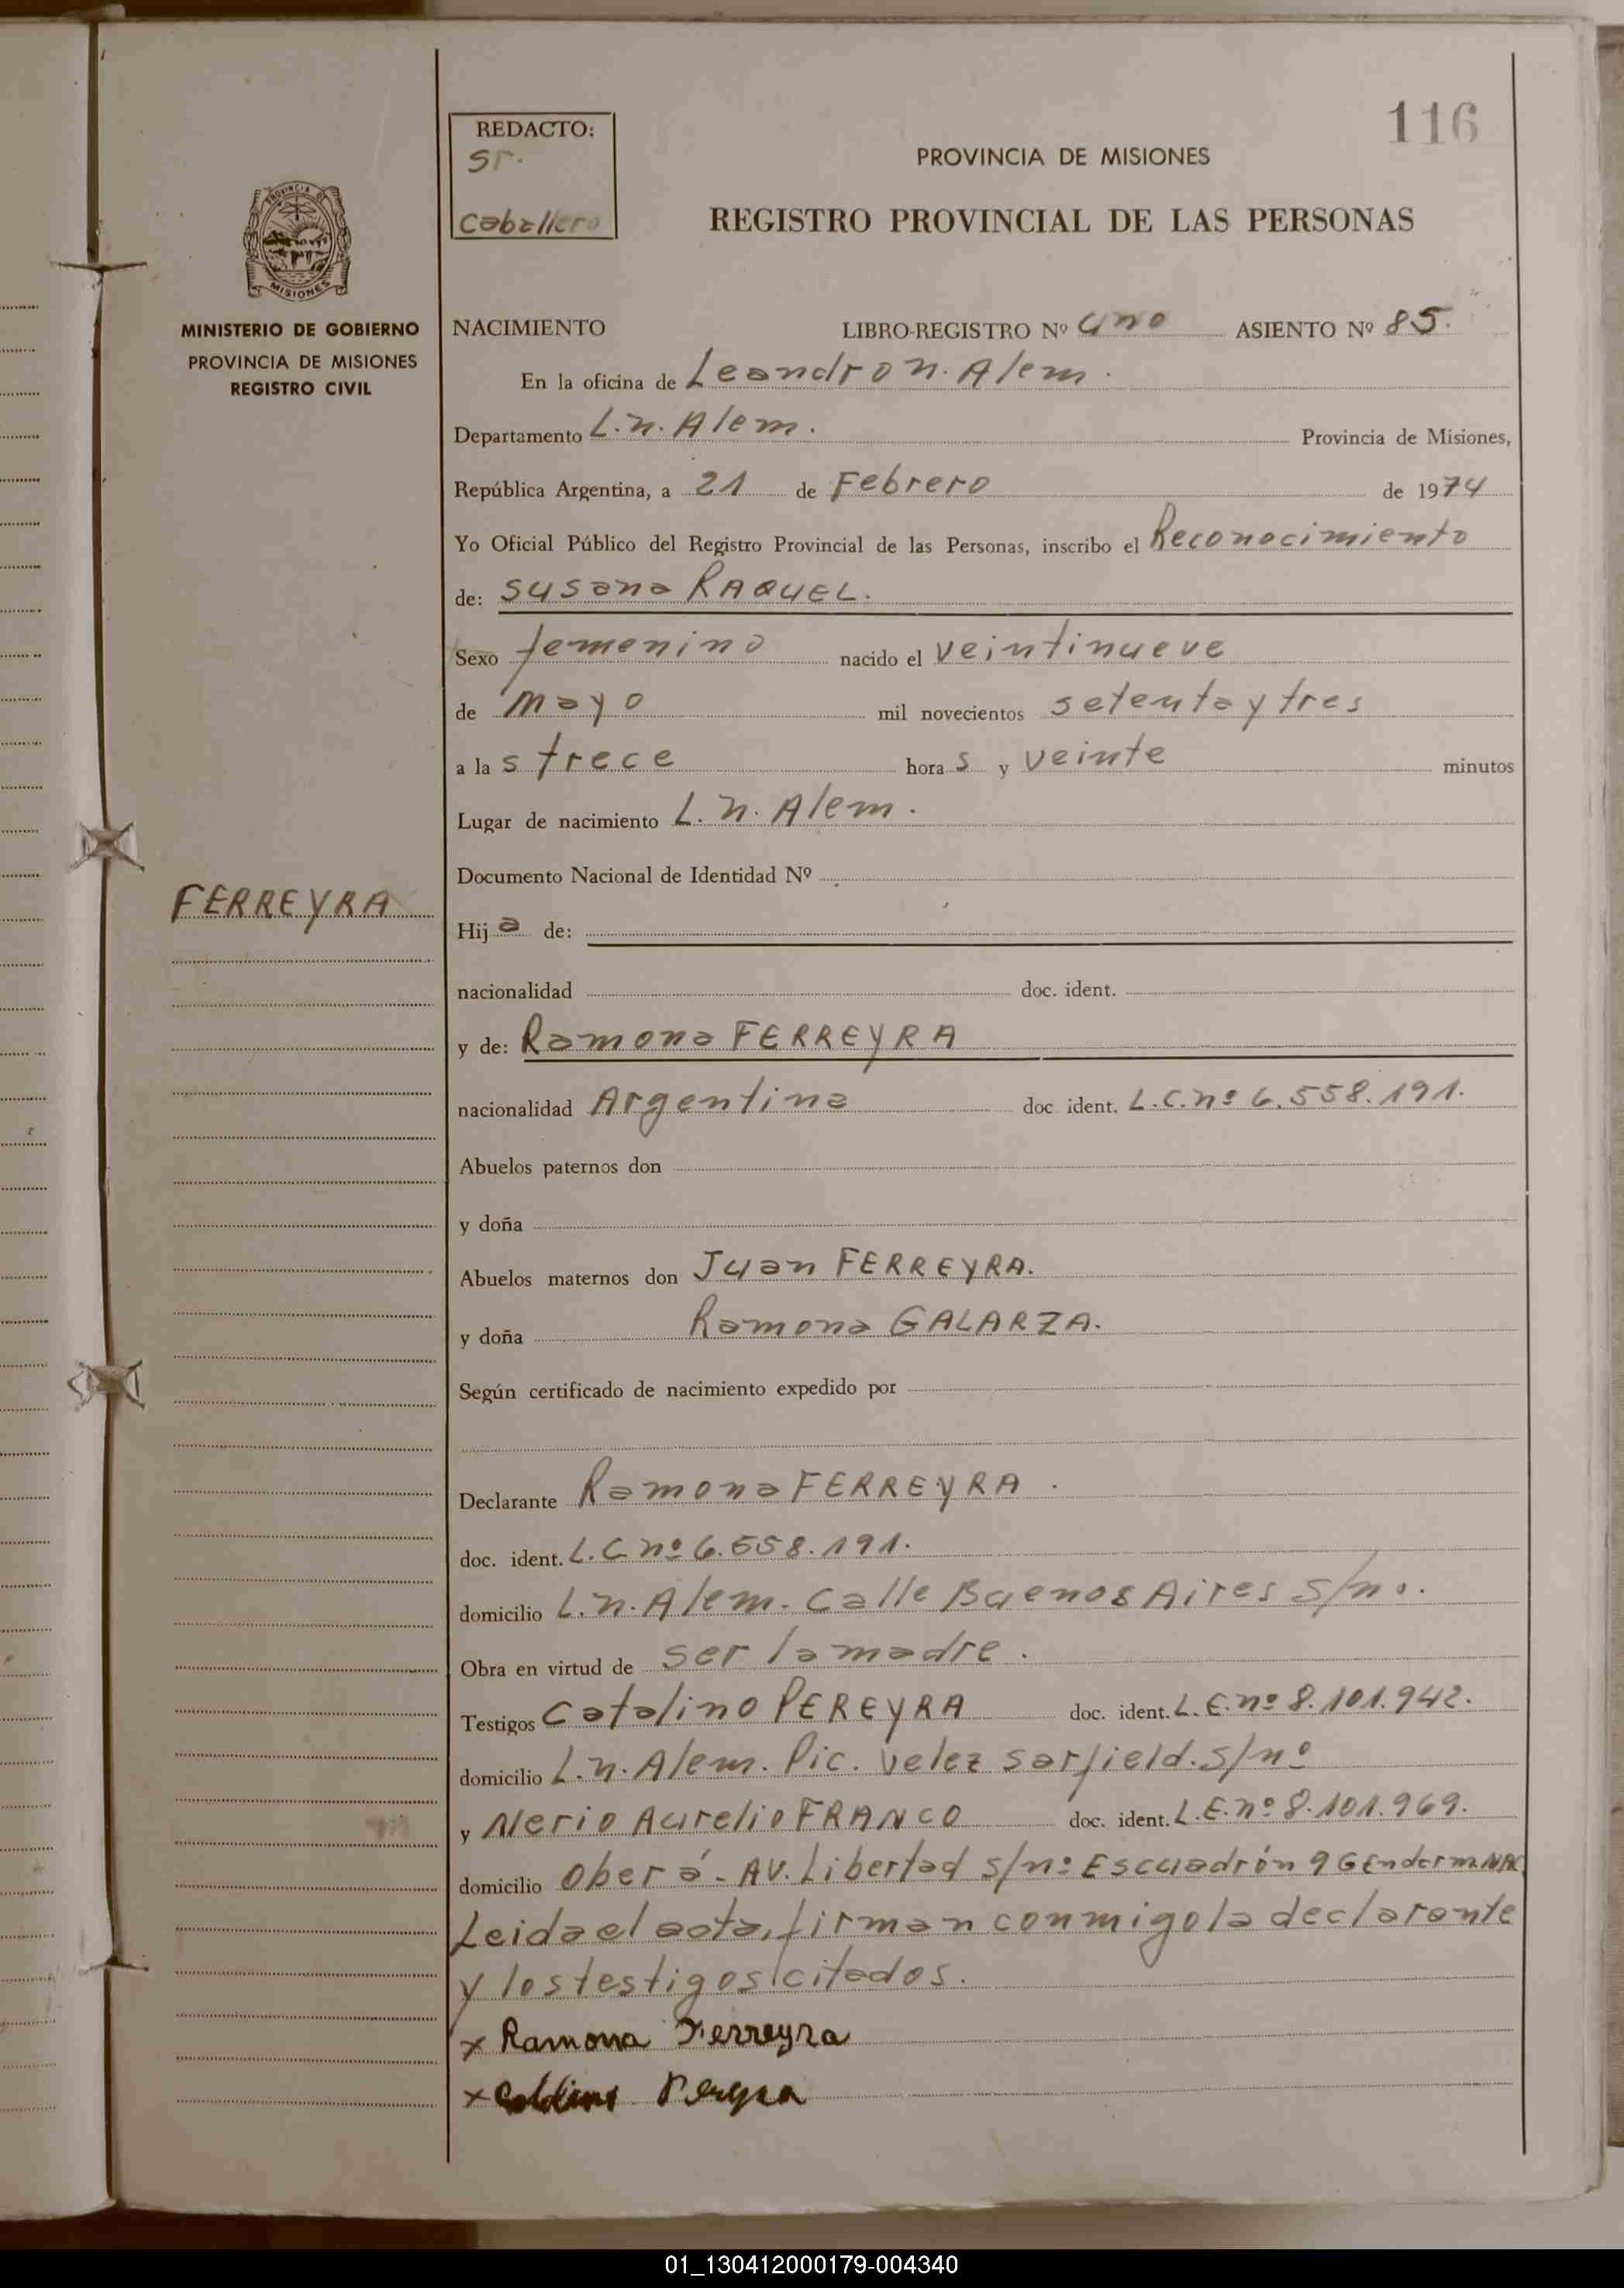 116
REDACTO:
Sr.
Caballero
PROVINCIA DE MISIONES
REGISTRO PROVINCIAL DE LAS PERSONAS
PROVINCIA DE
MISIONES
MINISTERIO DE GOBIERNO
PROVINCIA DE MISIONES
REGISTRO CIVIL
NACIMIENTO LIBRO-REGISTRO Nº uno ASIENTO Nº 85.
En la oficina de Leandro N. Alem.
Departamento L.N. Alem. Provincia de Misiones,
República Argentina, a 21 de Febrero de 1974
Yo Oficial Público del Registro Provincial de las Personas, inscribo el Reconocimiento
de: Susana RAQUEL.
Sexo femenino nacido el veintinueve
de mayo mil novecientos setenta y tres
a las trece horas y veinte minutos
Lugar de nacimiento L.N. Alem.
Documento Nacional de Identidad Nº
FERREYRA
Hija de:
nacionalidad doc. ident.
y de: Ramona FERREYRA
nacionalidad Argentina doc ident. L.C. nº 6.558.191.
Abuelos paternos don
y doña
Abuelos maternos don Juan FERREYRA.
y doña Ramona GALARZA.
Según certificado de nacimiento expedido por
Declarante Ramona FERREYRA.
doc. ident. L.C. nº 6.558.191.
domicilio L.N. Alem. Calle Buenos Aires s/nº.
Obra en virtud de ser la madre.
Testigos Catalino PEREYRA doc. ident. L.E. nº 8.101.942.
domicilio L.N. Alem. Pic. Velez Sarfield. s/nº
y Nerio Aurelio FRANCO doc. ident. L.E. nº 8.101.969.
domicilio Oberá - AV. Libertad s/nº Escuadrón 9 Genderm. NAC
Leida el acta, firman conmigo la declarante
y los testigos citados.
x Ramona Ferreyra
x Pereyra
01_130412000179-004340